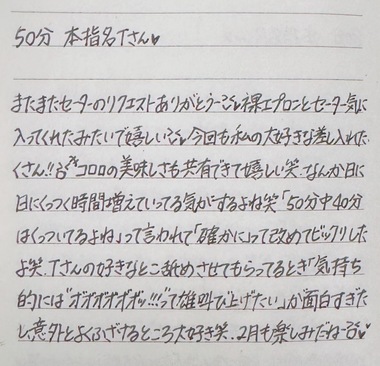 50分 本指名Tさん♥
またまたセーターのリクエストありがとう〜♥裸エプロンとセーター気に
入ってくれたみたいで嬉しい♥今回も私の大好きな差し入れた
くさん!!コロロの美味しさも共有できて嬉しい笑.なんか日に
日にくっつく時間増えていってる気がするよね笑「50分中40分
はくっついてるよね」って言われて「確かに」って改めてビックリした
よ笑.Tさんの好きなとこ舐めさせてもらってるとき「気持ち
的には"オ゛オ゛オ゛オ゛オ゛ッ!!!"って雄叫び上げたい」が面白すぎた
し、意外とよくふざけるところ大好き笑.2月も楽しみだね〜♥